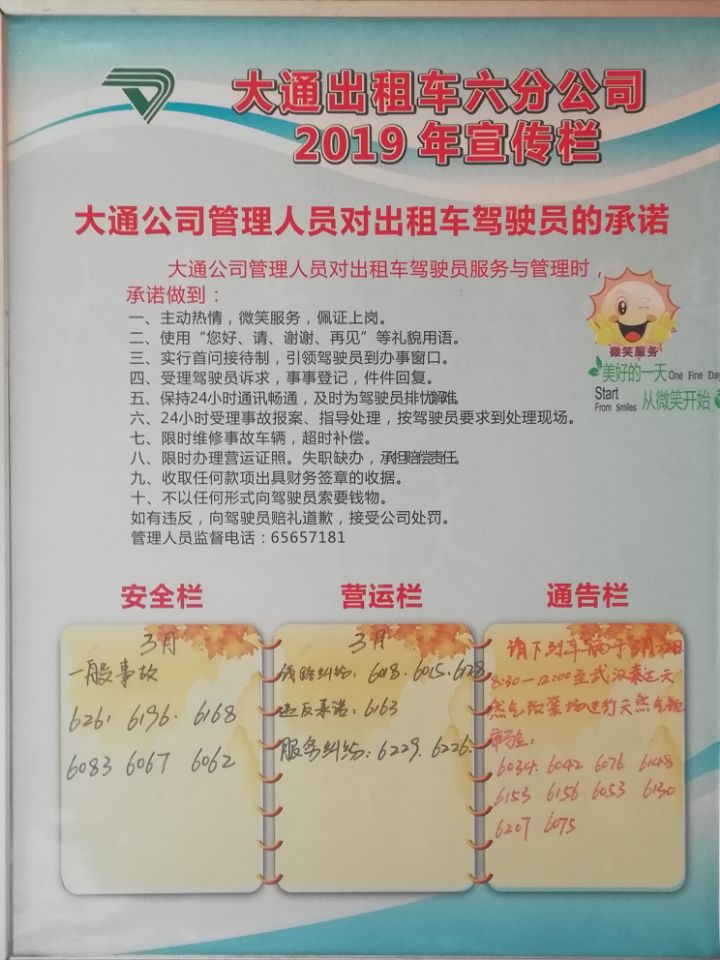 大通出租车六分公司
2019 年宣传栏
大通公司管理人员对出租车驾驶员的承诺
大通公司管理人员对出租车驾驶员服务与管理时，
承诺做到：
一、主动热情，微笑服务，佩证上岗。
二、使用“您好、请、谢谢、再见”等礼貌用语。
三、实行首问接待制，引领驾驶员到办事窗口。
四、受理驾驶员诉求，事事登记，件件回复。
五、保持24小时通讯畅通，及时为驾驶员排忧解难。
六、24小时受理事故报案、指导处理，按驾驶员要求到处理现场。
七、限时维修事故车辆，超时补偿。
八、限时办理营运证照。失职缺办，承担赔偿责任。
九、收取任何款项出具财务签章的收据。
十、不以任何形式向驾驶员索要钱物。
如有违反，向驾驶员赔礼道歉，接受公司处罚。
管理人员监督电话：65657181
微笑服务
美好的一天 One Fine Day
Start
From Smiles 从微笑开始
安全栏
3月
一般事故
6261 6196. 6168
6083 6067 6062
营运栏
3月
线路纠纷：6018. 6015. 6128
违反承诺：6163
服务纠纷：6229. 6226.
通告栏
请下列车辆于3月22日
8:30—12:00至武汉泰运天
然气改装场进行天然气瓶
审验：
6034. 6042 6076 6148
6153 6156 6053 6130
6207 6075